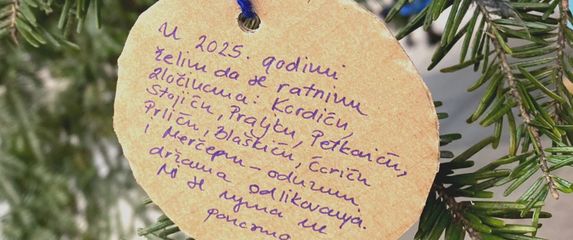 U 2025. godini
želim da se ratnim
zločincima: Kordiću,
Stojiću, Praljku, Petkoviću,
Prliću, Blaškiću, Ćoriću
i Merčepu - oduzmu
državna odlikovanja.
se njima ne